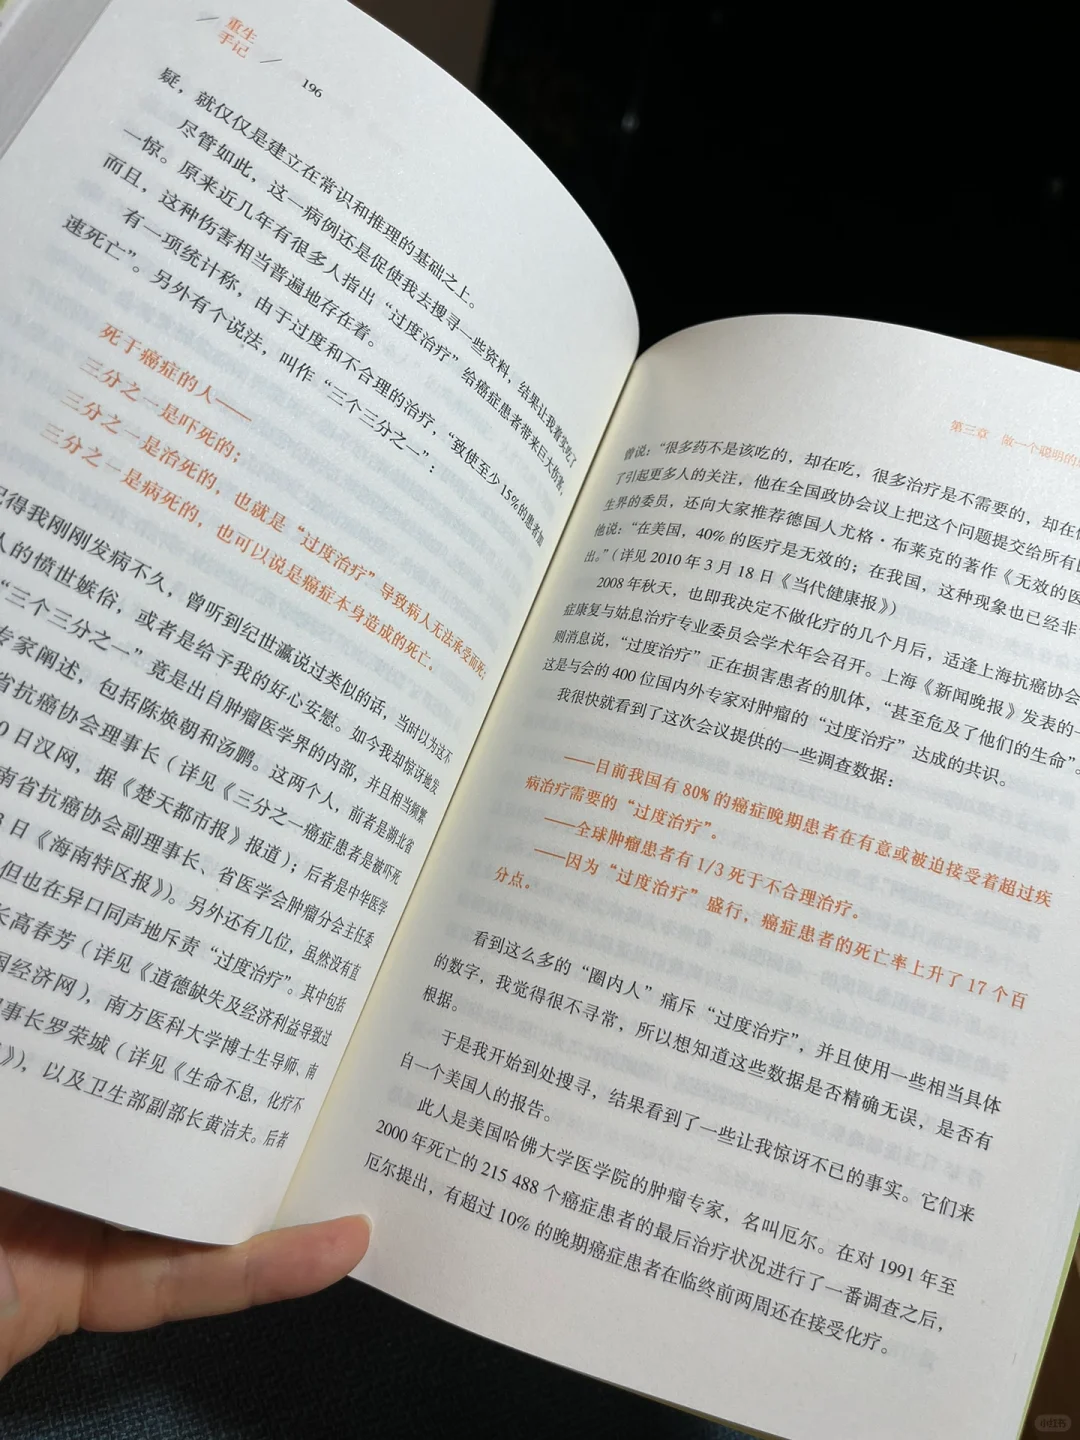 重生
手记
196
疑，就仅仅是建立在常识和推理的基础之上。
尽管如此，这一病例还是促使我去搜寻一些资料，结果让我着实吃了
一惊。原来近几年有很多人指出“过度治疗”给癌症患者带来巨大伤害，
而且，这种伤害相当普遍地存在着。
有一项统计称，由于过度和不合理的治疗，“致使至少15%的患者加
速死亡”。另外有个说法，叫作“三个三分之一”：
死于癌症的人——
三分之一是吓死的；
三分之一是治死的，也就是“过度治疗”导致病人无法承受而死；
三分之一是病死的，也可以说是癌症本身造成的死亡。
记得我刚刚发病不久，曾听到纪世瀛说过类似的话，当时以为这不
人的愤世嫉俗，或者是给予我的好心安慰。如今我却惊讶地发
“三个三分之一”竟是出自肿瘤医学界的内部，并且相当频繁
专家阐述，包括陈焕朝和汤鹏。这两个人，前者是湖北省
省抗癌协会理事长（详见《三分之一癌症患者是被吓死
0日汉网，据《楚天都市报》报道）；后者是中华医学
南省抗癌协会副理事长、省医学会肿瘤分会主任委
8日《海南特区报》）。另外还有几位，虽然没有直
但也在异口同声地斥责“过度治疗”。其中包括
长高春芳（详见《道德缺失及经济利益导致过
国经济网），南方医科大学博士生导师、南
事长罗荣城（详见《生命不息，化疗不
》），以及卫生部副部长黄洁夫。后者
第三章 做一个聪明的
曾说：“很多药不是该吃的，却在吃，很多治疗是不需要的，却在
了引起更多人的关注，他在全国政协会议上把这个问题提交给所有
生界的委员，还向大家推荐德国人尤格·布莱克的著作《无效的医
他说：“在美国，40%的医疗是无效的；在我国，这种现象也已经非
出。”（详见2010年3月18日《当代健康报》）
2008年秋天，也即我决定不做化疗的几个月后，适逢上海抗癌协会
症康复与姑息治疗专业委员会学术年会召开。上海《新闻晚报》发表的一
则消息说，“过度治疗”正在损害患者的肌体，“甚至危及了他们的生命”。
这是与会的400位国内外专家对肿瘤的“过度治疗”达成的共识。
我很快就看到了这次会议提供的一些调查数据：
——目前我国有80%的癌症晚期患者在有意或被迫接受着超过疾
病治疗需要的“过度治疗”。
——全球肿瘤患者有1/3死于不合理治疗。
——因为“过度治疗”盛行，癌症患者的死亡率上升了17个百
分点。
看到这么多的“圈内人”痛斥“过度治疗”，并且使用一些相当具体
的数字，我觉得很不寻常，所以想知道这些数据是否精确无误，是否有
根据。
于是我开始到处搜寻，结果看到了一些让我惊讶不已的事实。它们来
自一个美国人的报告。
此人是美国哈佛大学医学院的肿瘤专家，名叫厄尔。在对1991年至
2000年死亡的215 488个癌症患者的最后治疗状况进行了一番调查之后，
厄尔提出，有超过10%的晚期癌症患者在临终前两周还在接受化疗。
小红书